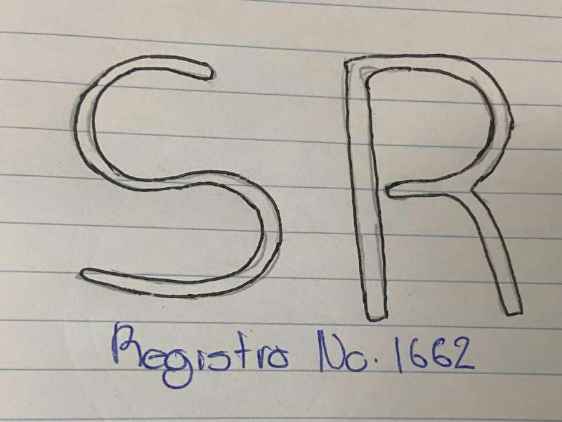 SR
Registro No. 1662